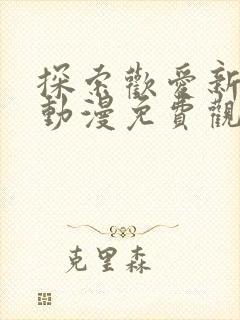 探索歡愛新
動漫免費觀
克里森